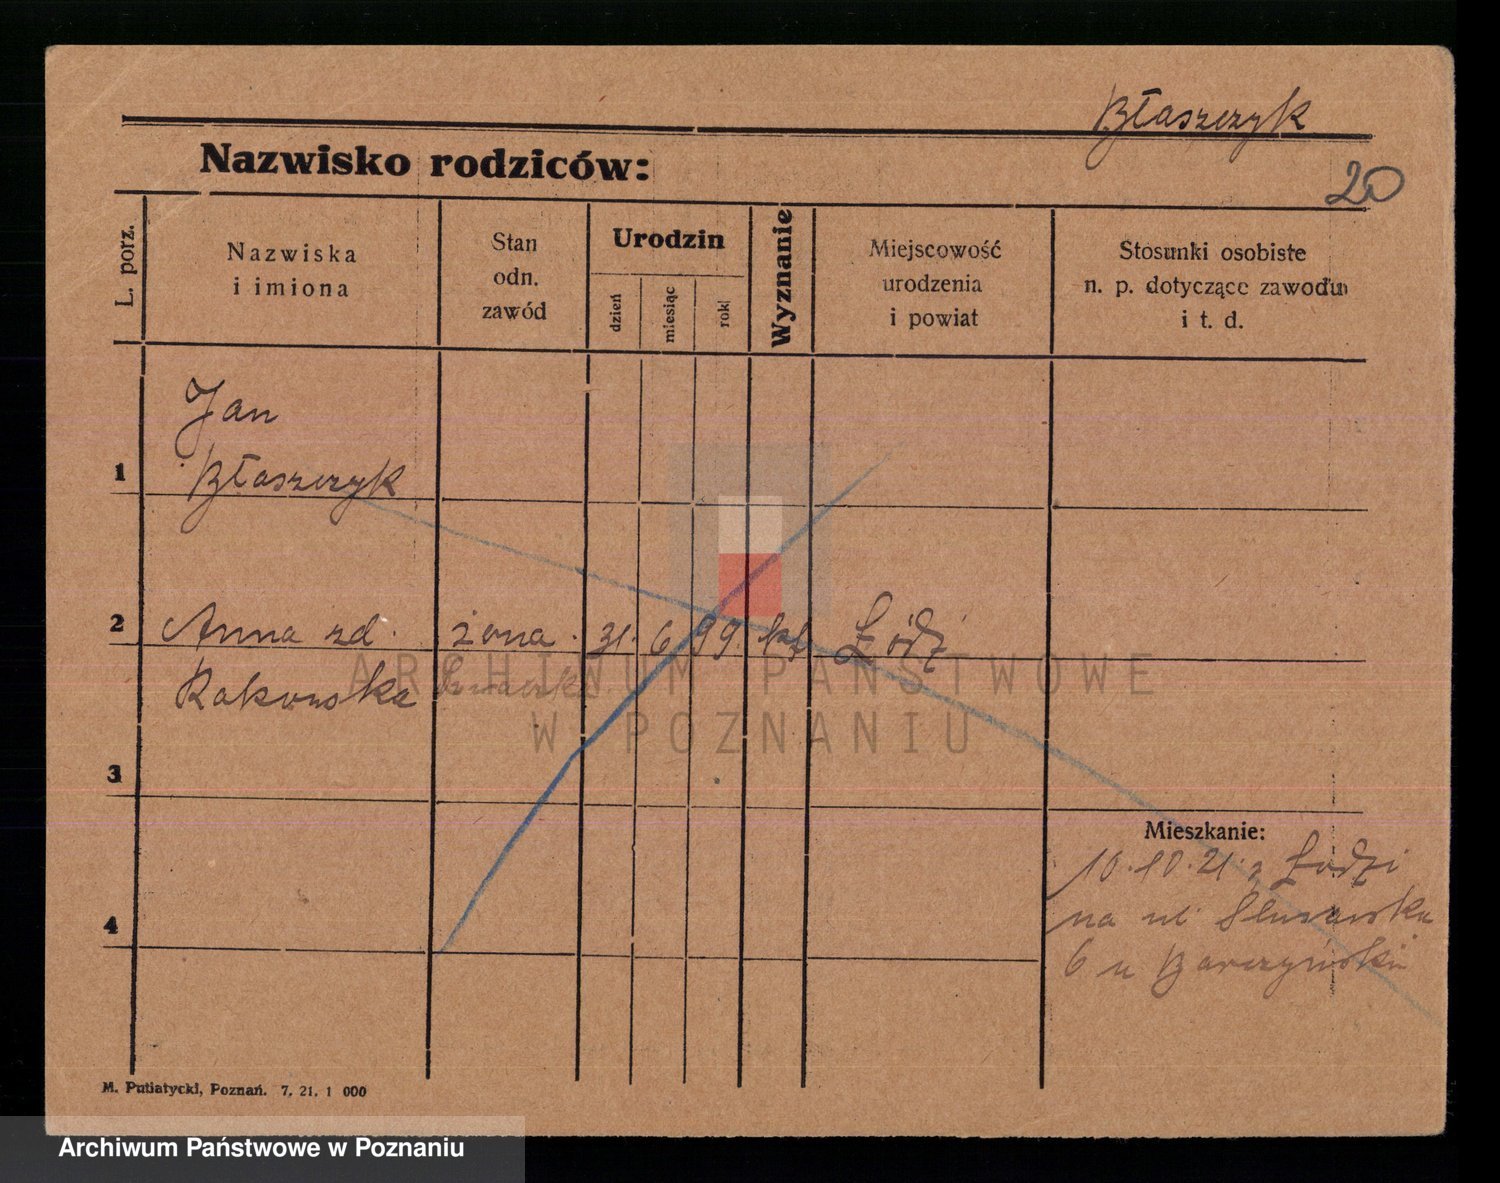 Błaszczyk
Nazwisko rodziców:
20
L. porz.
Nazwiska
i imiona
Stan
odn.
zawód
Urodzin
dzień
miesiąc
rok
Wyznanie
Miejscowość
urodzenia
i powiat
Stosunki osobiste
n. p. dotyczące zawodu
i t. d.
1
Jan
Błaszczyk
2
Anna zd.
Rakowska
żona
31. 6 99. kt Łódź
ARCHIWUM PAŃSTWOWE
W POZNANIU
3
Mieszkanie:
10.10.21 z Łodzi
na ul.
6 u
4
M. Putiatycki, Poznań. 7. 21. 1 000
Archiwum Państwowe w Poznaniu